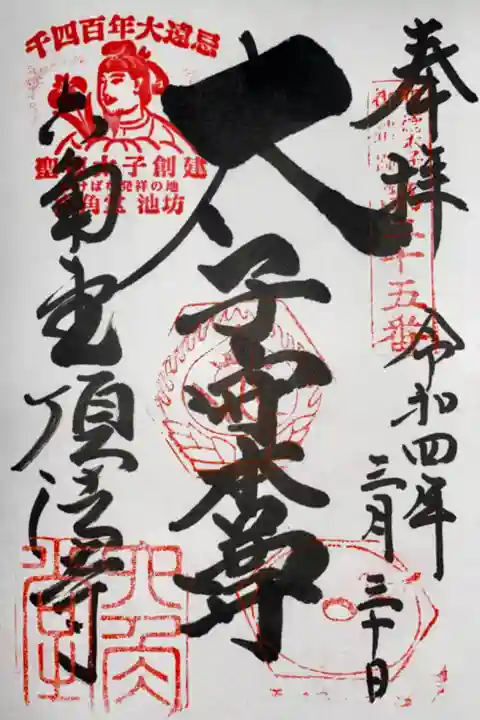 奉拝
令和四年
三月三十日
太子守本尊
六角堂頂法寺
千四百年大遠忌
聖徳太子創建
いけばな発祥の地
六角堂 池坊
三十五番
六角堂